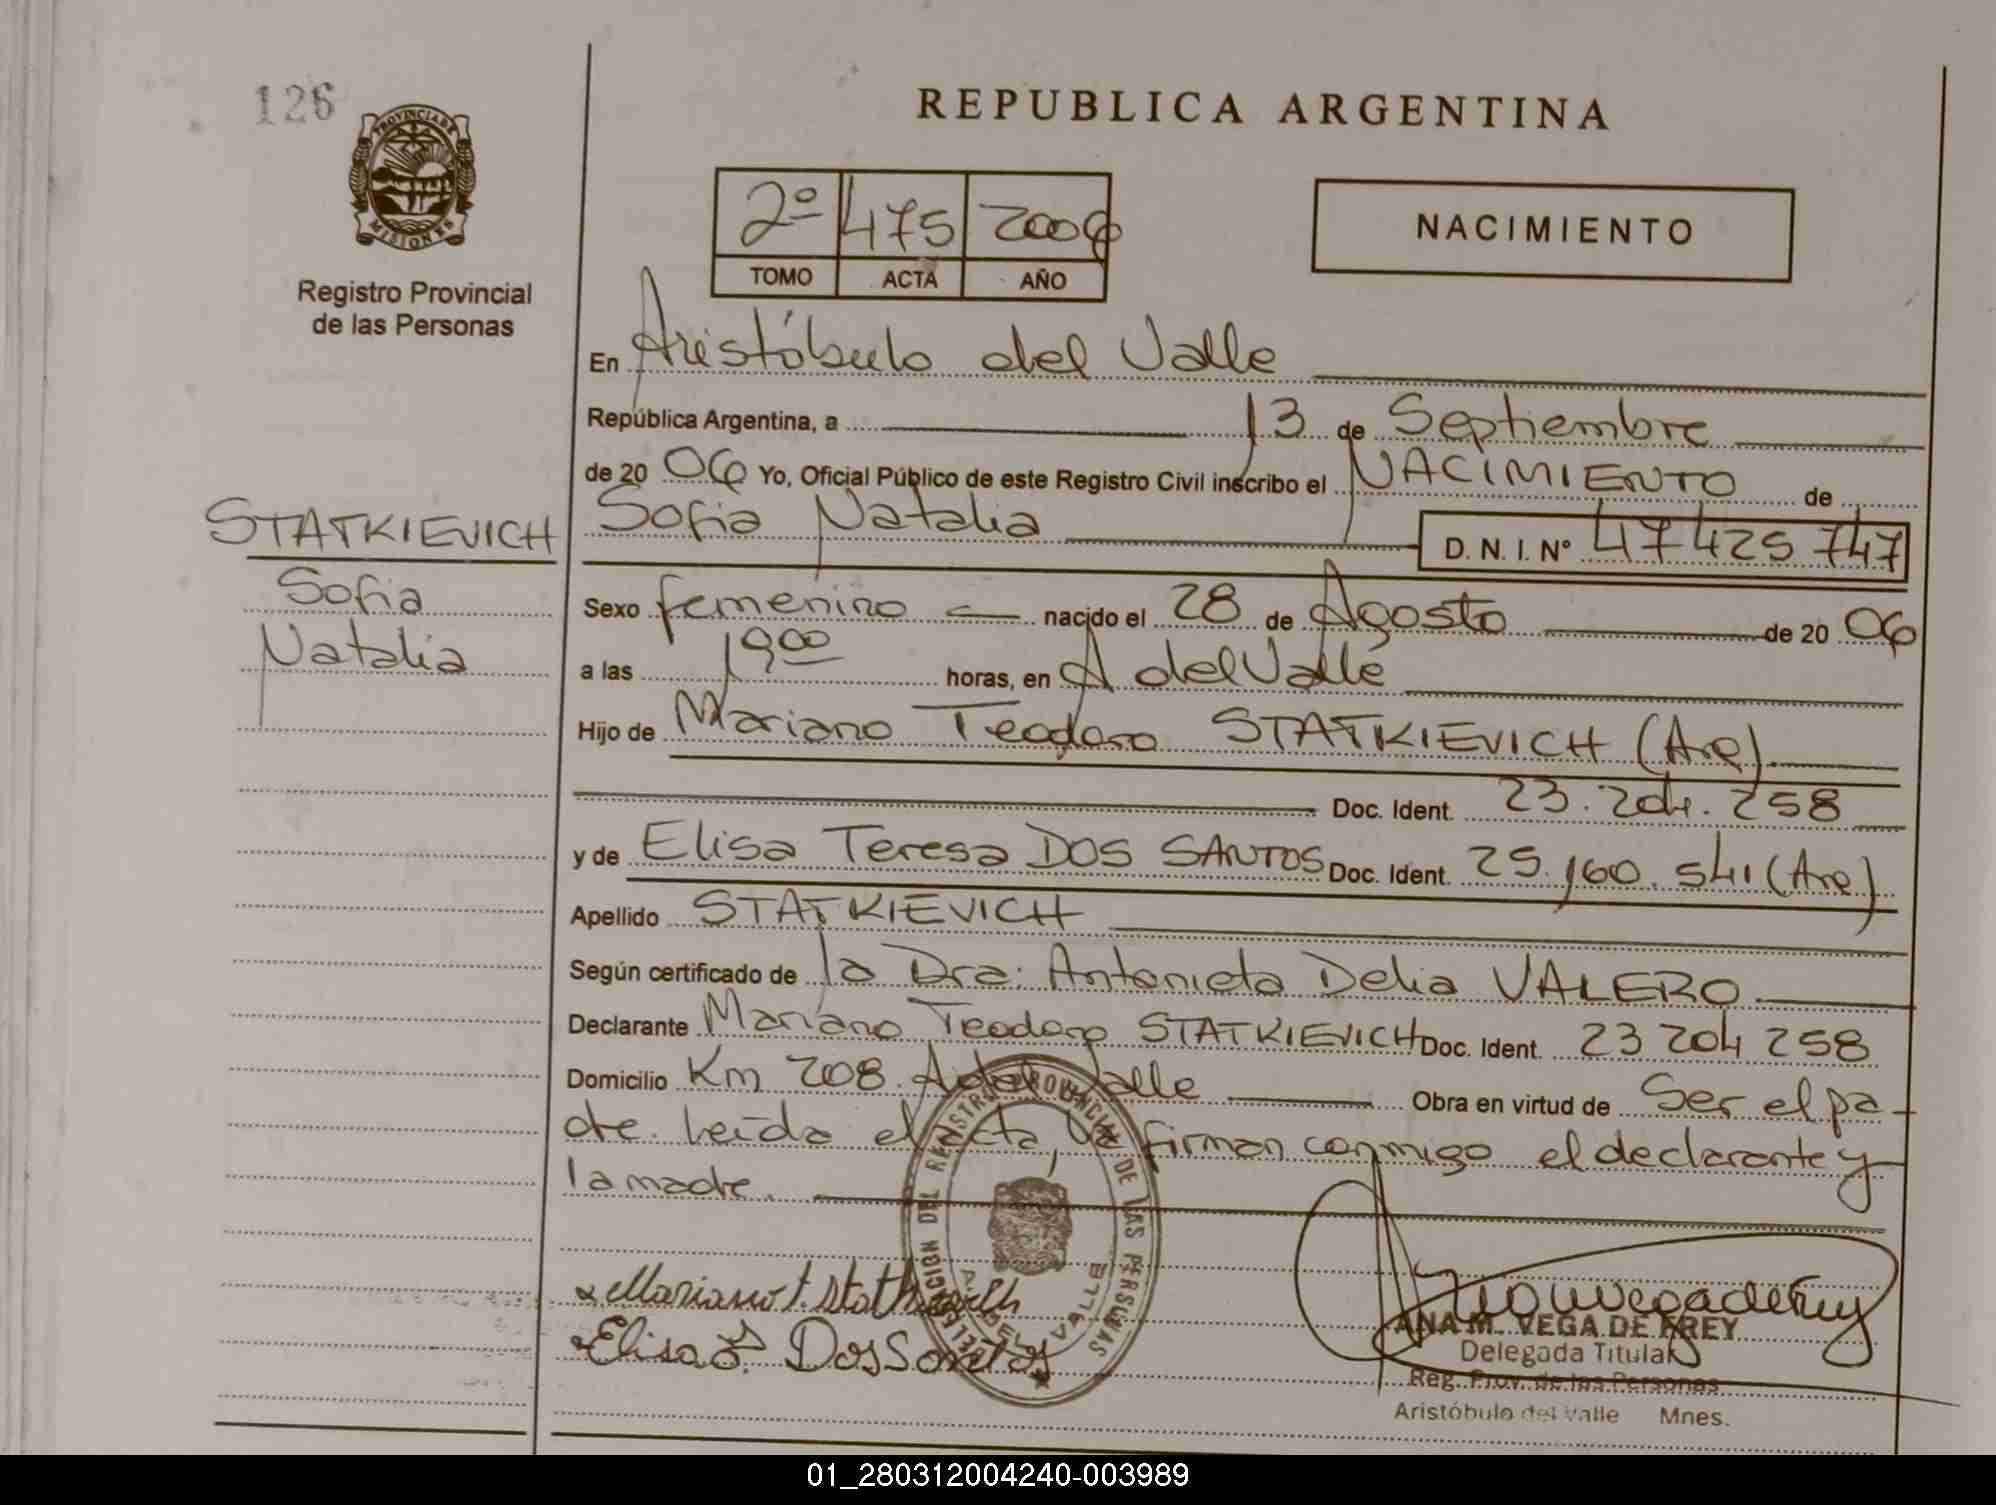 126
PROVINCIA DE
MISIONES
Registro Provincial
de las Personas
REPUBLICA ARGENTINA
2º 475 2006
TOMO ACTA AÑO
NACIMIENTO
En Aristóbulo del Valle
República Argentina, a 13 de Septiembre
de 20 06 Yo, Oficial Público de este Registro Civil inscribo el NACIMIENTO de
STATKIEVICH
Sofia
Natalia
Sofia Natalia D. N. I. Nº 47 425 747
Sexo femenino nacido el 28 de Agosto de 20 06
a las 19 00 horas, en A del Valle
Hijo de Mariano Teodoro STATKIEVICH (Arg)
Doc. Ident. 23.204.258
y de Elisa Teresa DOS SANTOS Doc. Ident. 25.160.541 (Arg)
Apellido STATKIEVICH
Según certificado de la Dra: Antonieta Delia VALERO
Declarante Mariano Teodoro STATKIEVICH Doc. Ident. 23 204 258
Domicilio Km 208. A del Valle Obra en virtud de Ser el pa-
dre. Leída el acta, la firman conmigo el declarante y
la madre.
DELEGACION DEL REGISTRO PROVINCIAL DE LAS PERSONAS
A. DEL VALLE
Mariano T. Statkievich
Elisa T. Dos Santos
ANA M. VEGA DE FREY
Delegada Titular
Reg. Prov. de las Personas
Aristóbulo del Valle Mnes.
01_280312004240-003989